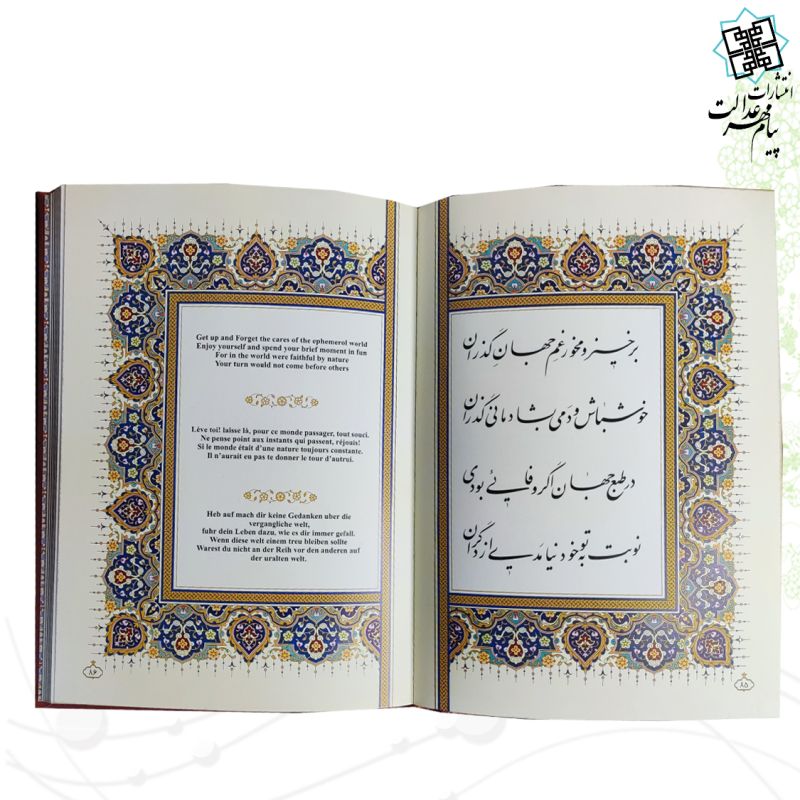 انتشارات
پیام مهر عدالت
برخیز و مخور غم جهان گذران
خوش باش و دمی بشادمانی گذران
در طبع جهان اگر وفایی بودی
نوبت به تو خود نیامدی از دگران
۸۵
Get up and Forget the cares of the ephemerol world
Enjoy yourself and spend your brief moment in fun
For in the world were faithful by nature
Your turn would not come before others
Lève toi! laisse là, pour ce monde passager, tout souci.
Ne pense point aux instants qui passent, réjouis!
Si le monde était d'une nature toujours constante.
Il n'aurait eu pas te donner le tour d'autrui.
Heb auf mach dir keine Gedanken uber die
vergangliche welt,
fuhr dein Leben dazu, wie es dir immer gefall.
Wenn diese welt einem treu bleiben sollte
Warest du nicht an der Reih vor den anderen auf
der uralten welt.
۸۶